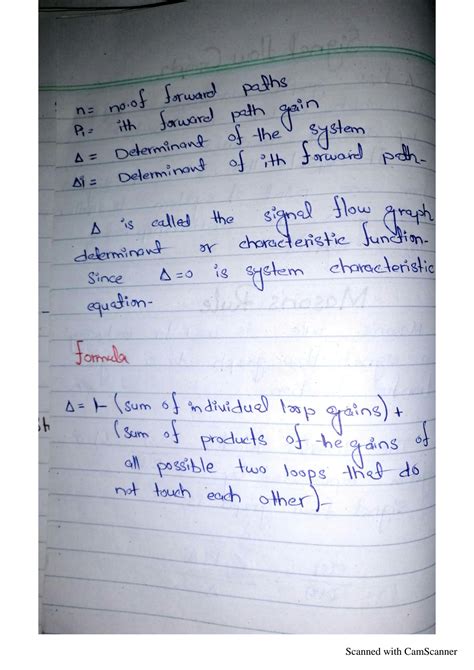 n = no.of forward paths
Pi = ith forward path gain
Δ = Determinant of the system
Δi = Determinant of ith forward path-
Δ is called the signal flow graph
determinant or characteristic function-
Since Δ=0 is system characteristic
equation-
Formula
Δ = 1- (sum of individual loop gains) +
(sum of products of he gains of
all possible two loops that do
not touch each other)-
Scanned with CamScanner